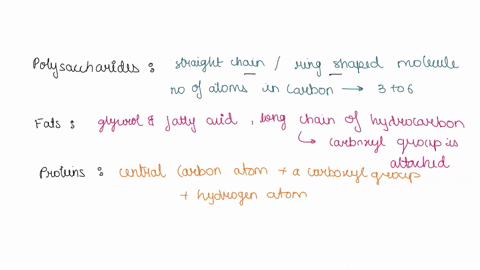 Polysaccharides : straight chain / ring shaped molecule
no of atoms in carbon → 3 to 6
Fats : glycerol & fatty acid , long chain of hydrocarbon
↳ carboxyl group is
attached
Proteins : central carbon atom + a carboxyl group
+ hydrogen atom